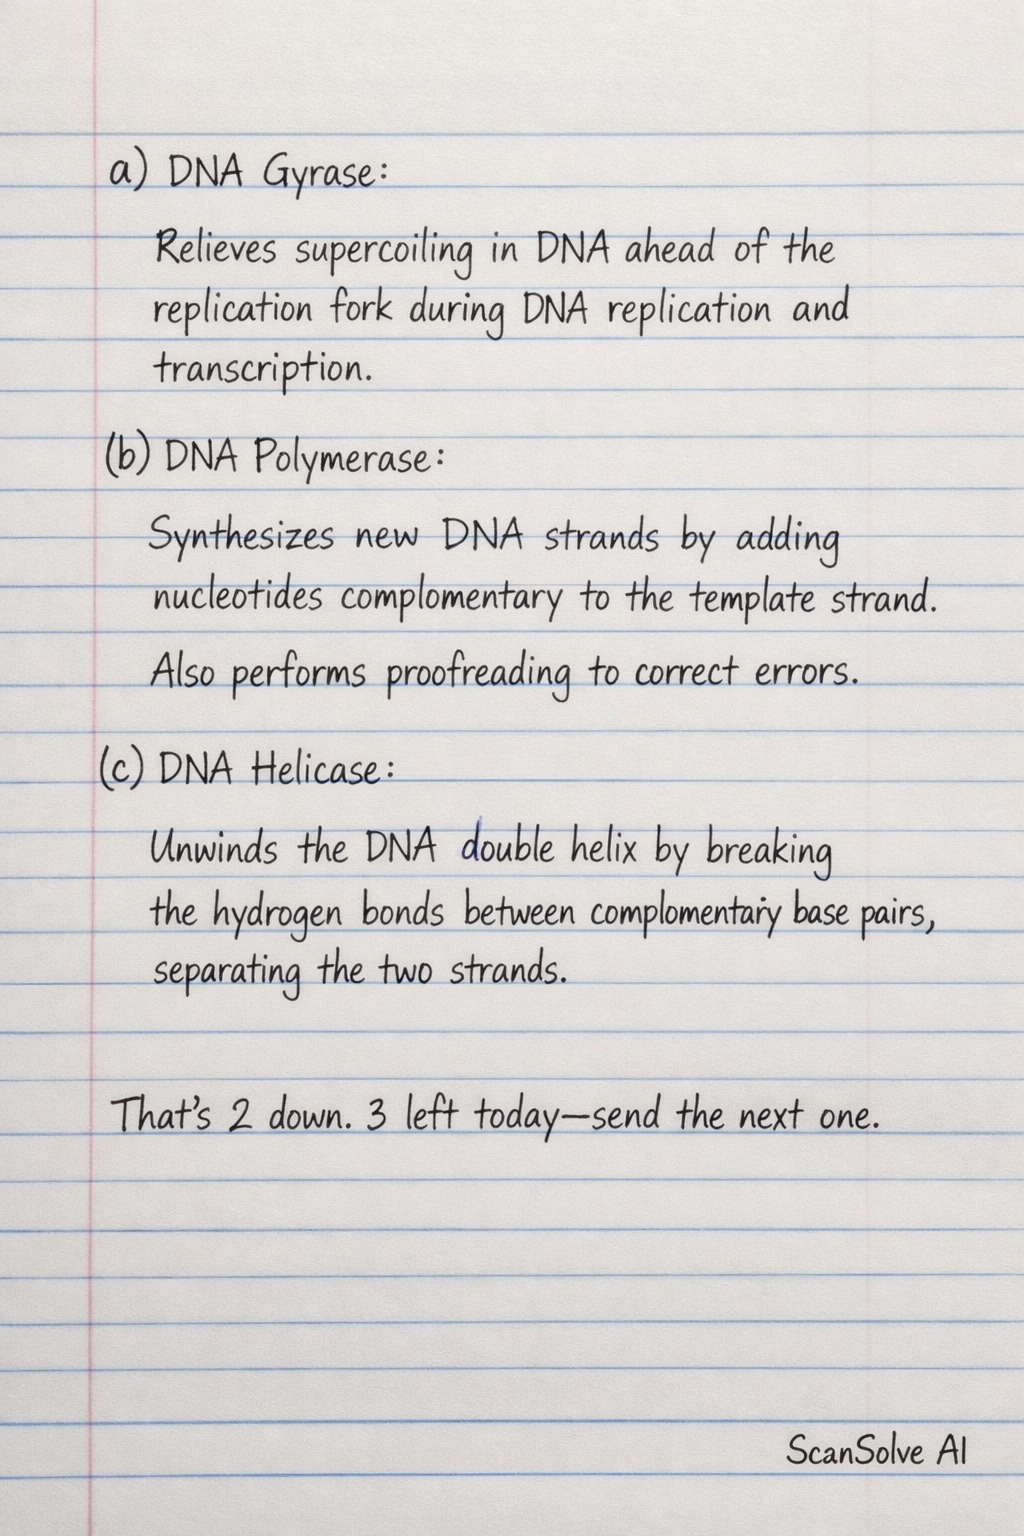 a) DNA Gyrase:
Relieves supercoiling in DNA ahead of the
replication fork during DNA replication and
transcription.
(b) DNA Polymerase:
Synthesizes new DNA strands by adding
nucleotides complomentary to the template strand.
Also performs proofreading to correct errors.
(c) DNA Helicase:
Unwinds the DNA double helix by breaking
the hydrogen bonds between complomentary base pairs,
separating the two strands.
That's 2 down. 3 left today—send the next one.
ScanSolve AI